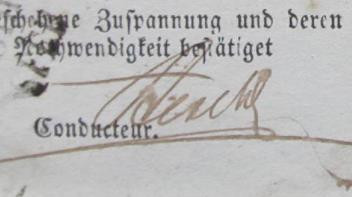 geschehene Zuspannung und deren
Nothwendigkeit bestätiget
Conducteur.